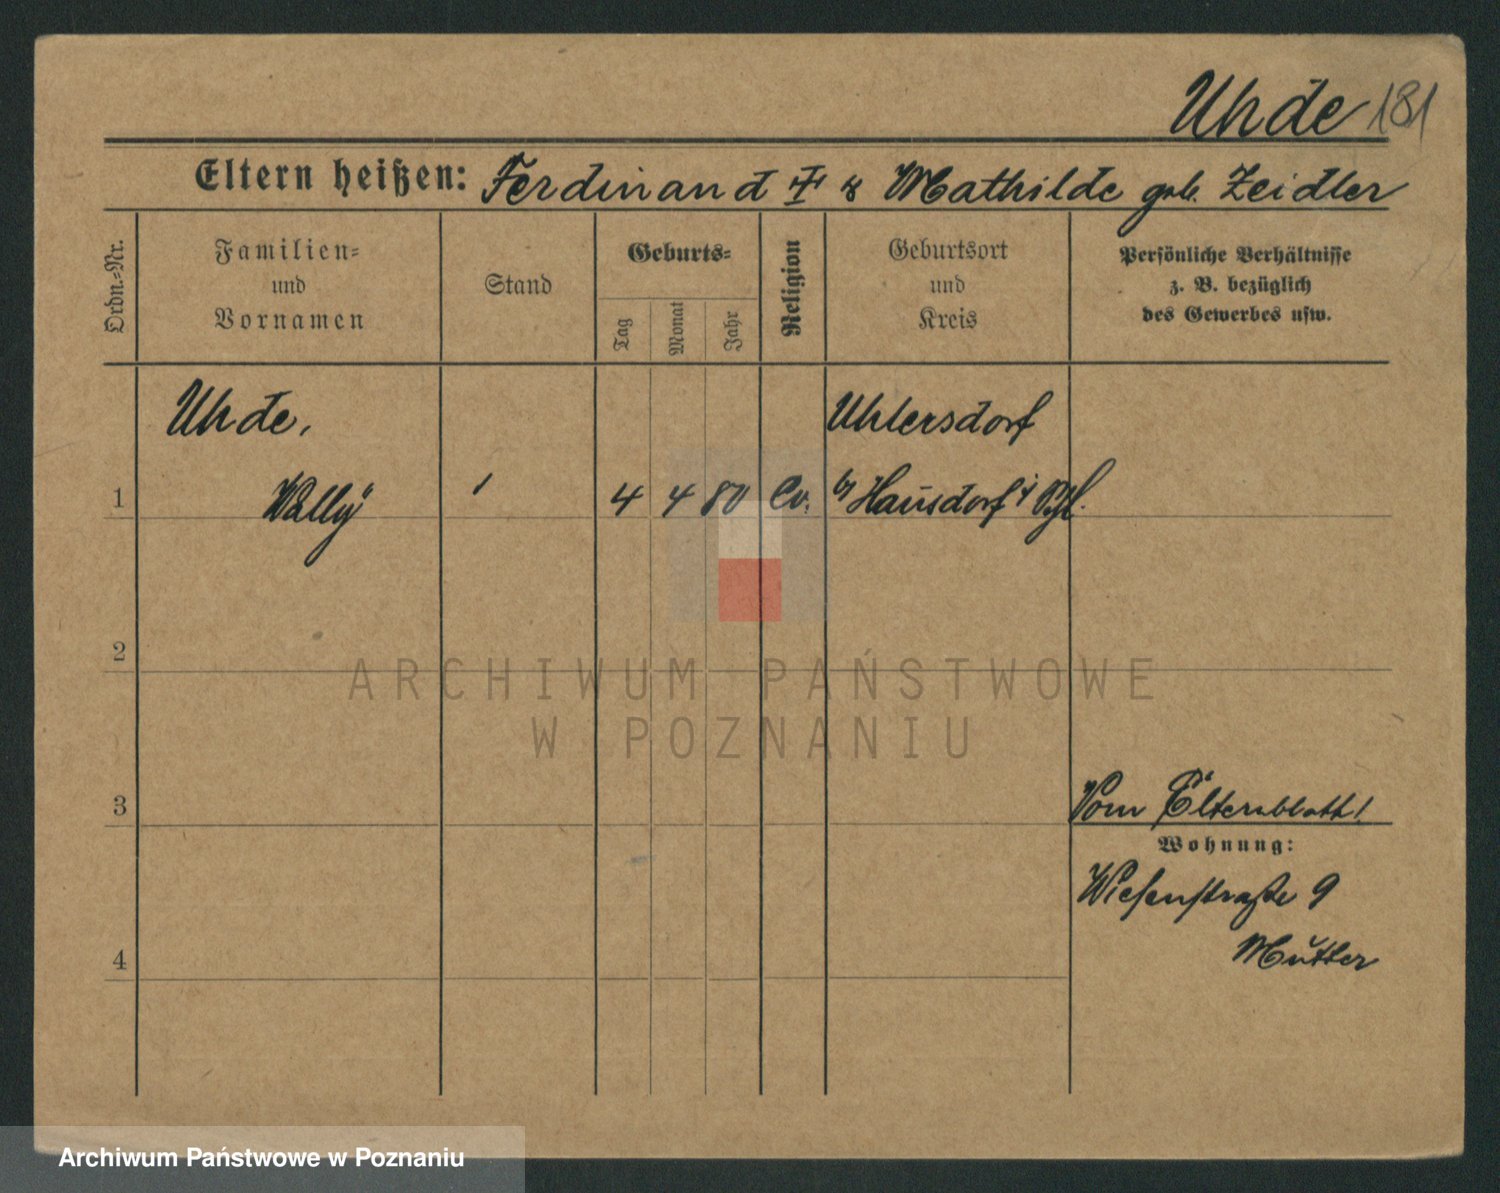 Uhde 181
Eltern heißen: Ferdinand † & Mathilde geb. Zeidler
Ordn.=Nr.
Familien=
und
Vornamen
Stand
Geburts=
Tag
Monat
Jahr
Religion
Geburtsort
und
Kreis
Persönliche Verhältnisse
z. B. bezüglich
des Gewerbes usw.
Uhde,
Uhlersdorf
1 Wally 4 4 80 Ev. b/ Hausdorf i/
2
ARCHIWUM PAŃSTWOWE
W POZNANIU
3
Vom Elternblatt!
Wohnung:
Wiesenstraße 9
Mutter
4
Archiwum Państwowe w Poznaniu